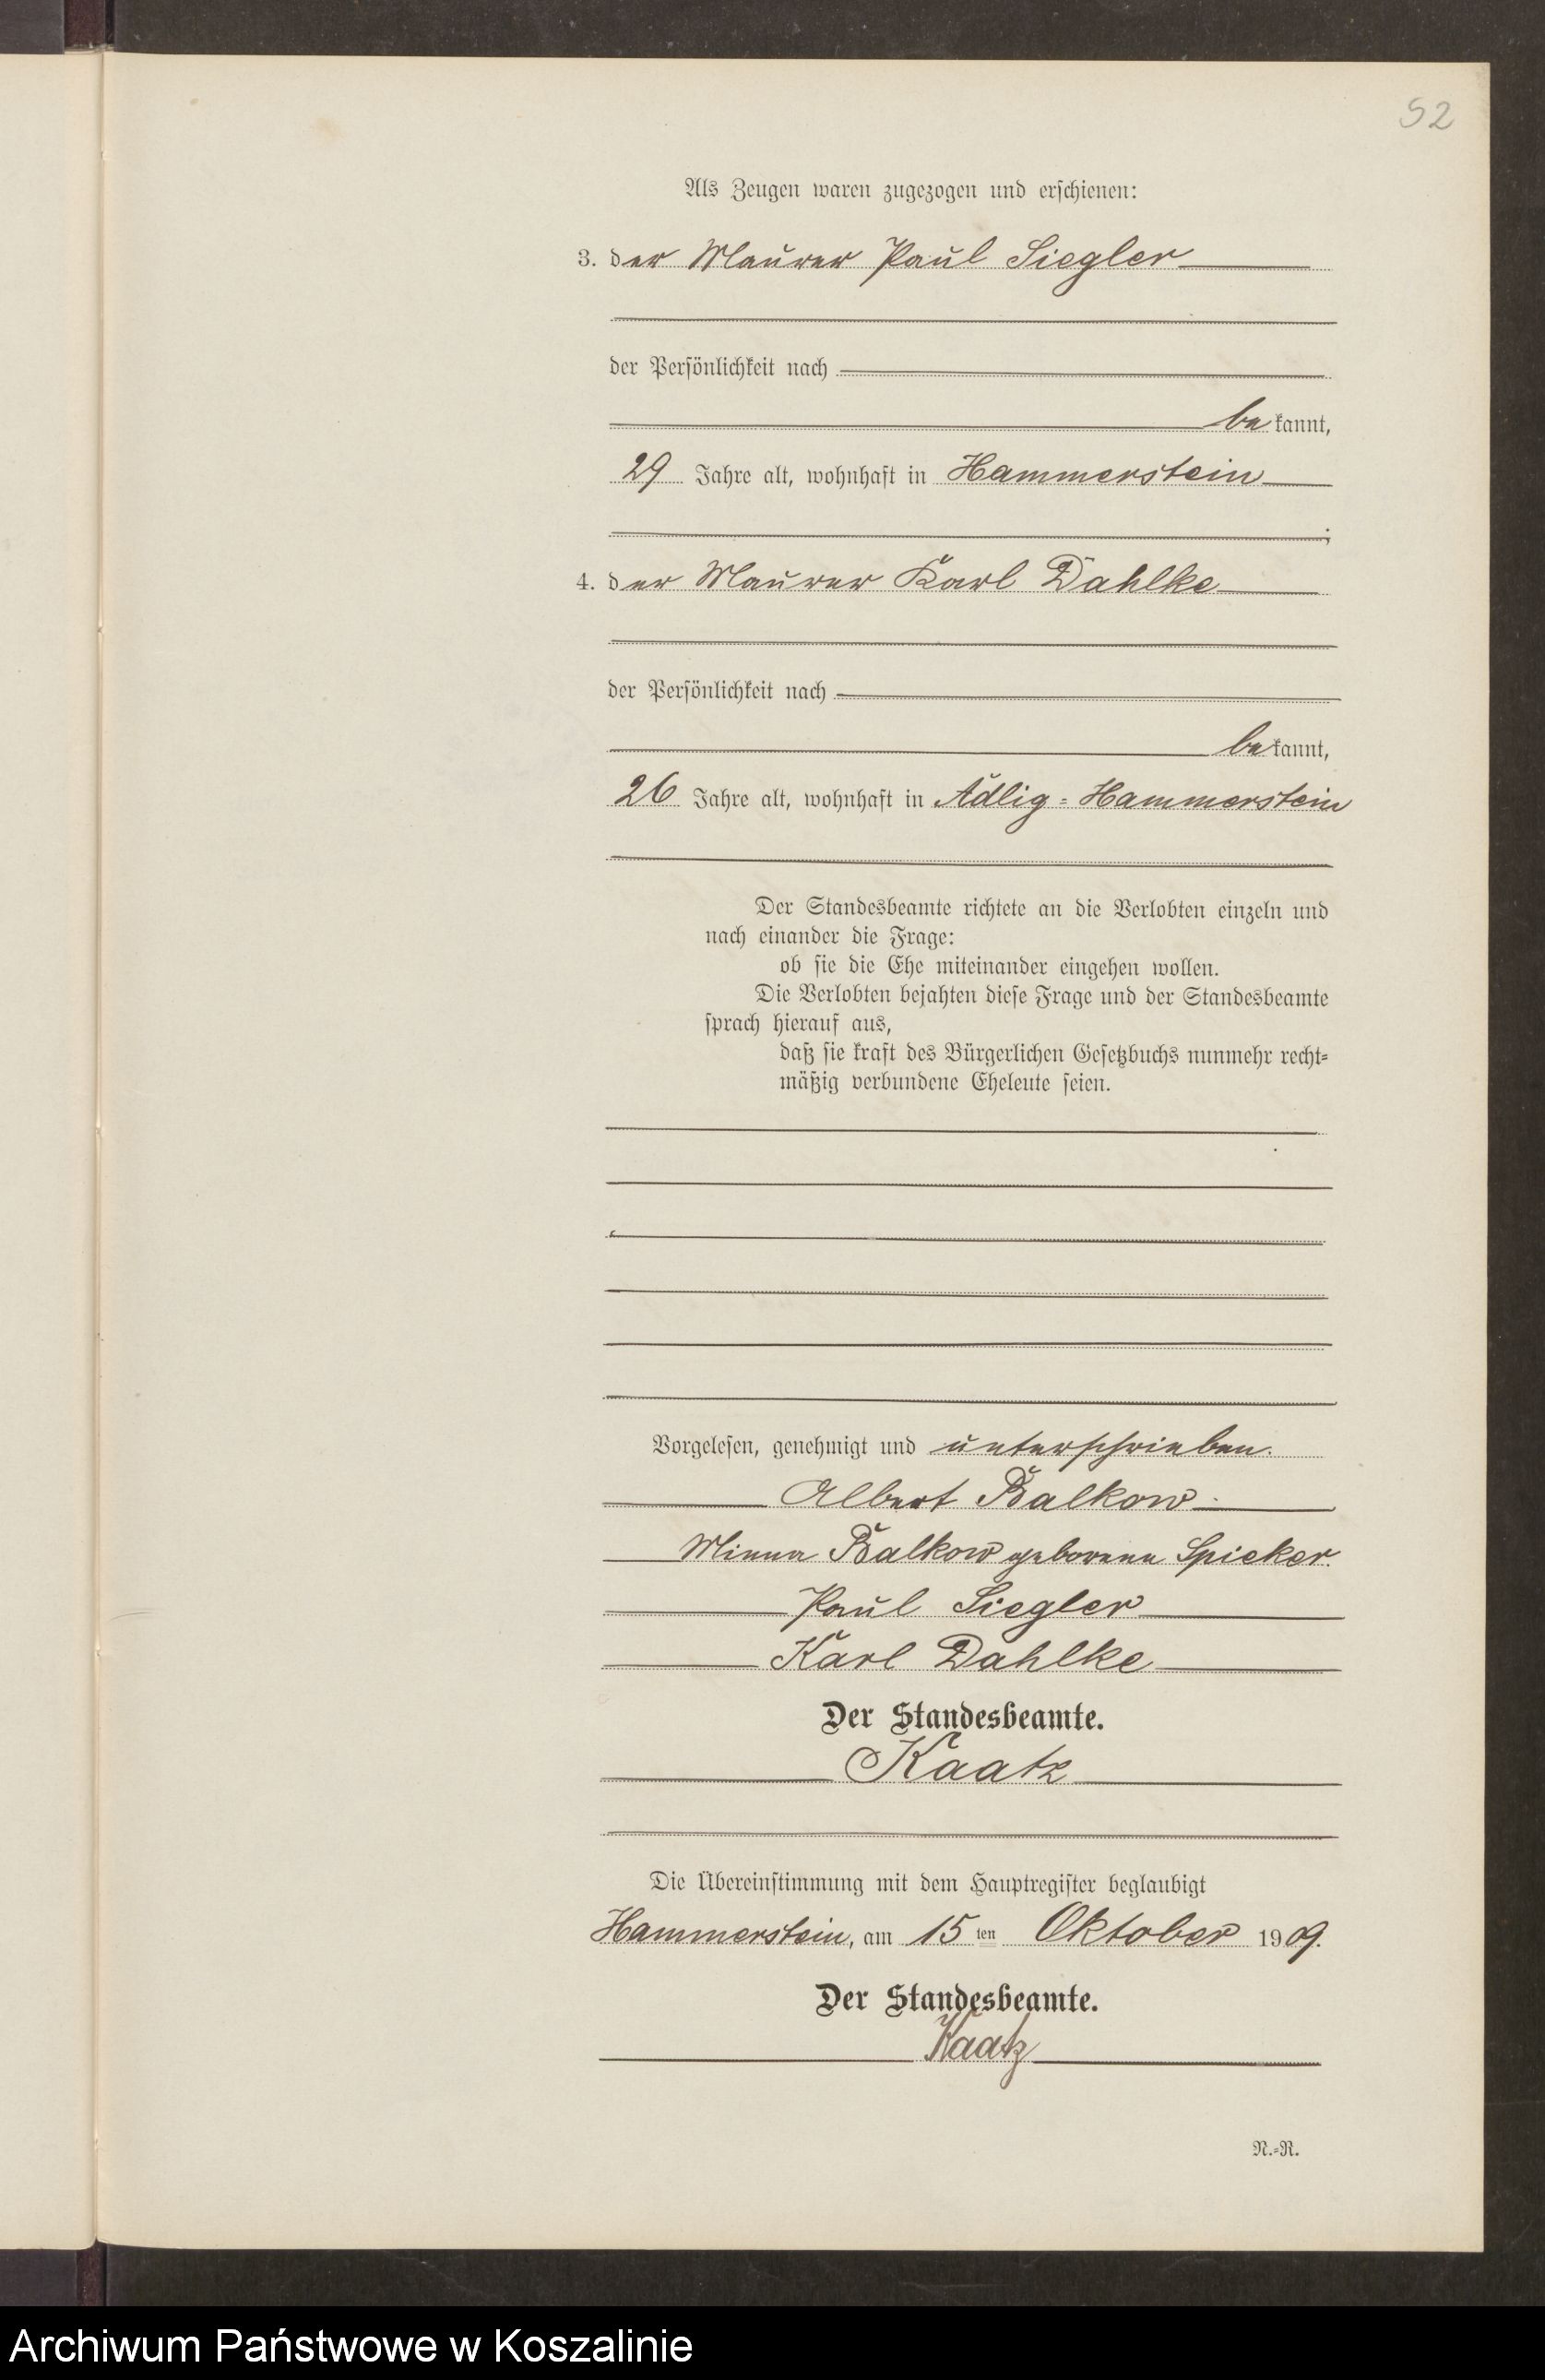 52
Als Zeugen waren zugezogen und erschienen:
3. der Maurer Paul Siegler
der Persönlichkeit nach
bekannt,
29 Jahre alt, wohnhaft in Hammerstein
;
4. der Maurer Karl Dahlke
der Persönlichkeit nach
bekannt,
26 Jahre alt, wohnhaft in Adlig-Hammerstein
Der Standesbeamte richtete an die Verlobten einzeln und
nach einander die Frage:
ob sie die Ehe miteinander eingehen wollen.
Die Verlobten bejahten diese Frage und der Standesbeamte
sprach hierauf aus,
daß sie kraft des Bürgerlichen Gesetzbuchs nunmehr recht-
mäßig verbundene Eheleute seien.
Vorgelesen, genehmigt und unterschrieben.
Albert Balkow.
Minna Balkow geborene Spieker.
Paul Siegler
Karl Dahlke
Der Standesbeamte.
Kaatz
Die Übereinstimmung mit dem Hauptregister beglaubigt
Hammerstein, am 15ten Oktober 1909.
Der Standesbeamte.
Kaatz
N.-R.
Archiwum Państwowe w Koszalinie